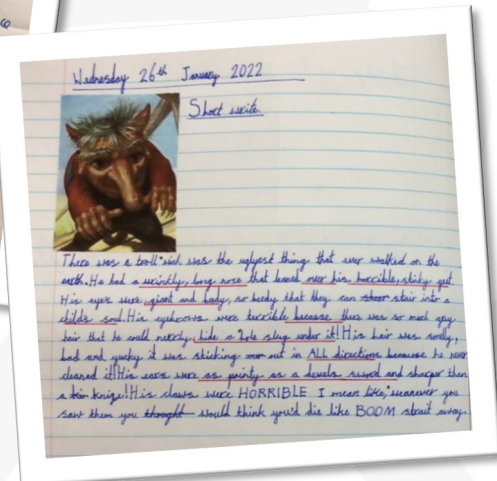 Wednesday 26th January 2022
Short write.
There was a troll wich was the uglyest thing that ever walked on the
earth. He had a long nose that leaned over his, horrible, stinky gut.
His eyes were giant and beedy, so beedy that they can stair into a
childs soul. His eyebrows were terrible because there was so much gray
hair that he could hide a hole slug under it! His hair was smelly,
bad and yucky it was sticking out in ALL directions because he never
cleaned it! His ears were as pointy as a devels sword and sharper than
a knife! His claws were HORRIBLE I mean like, weanever you
saw them you thought would think you'd die like BOOM strait away.